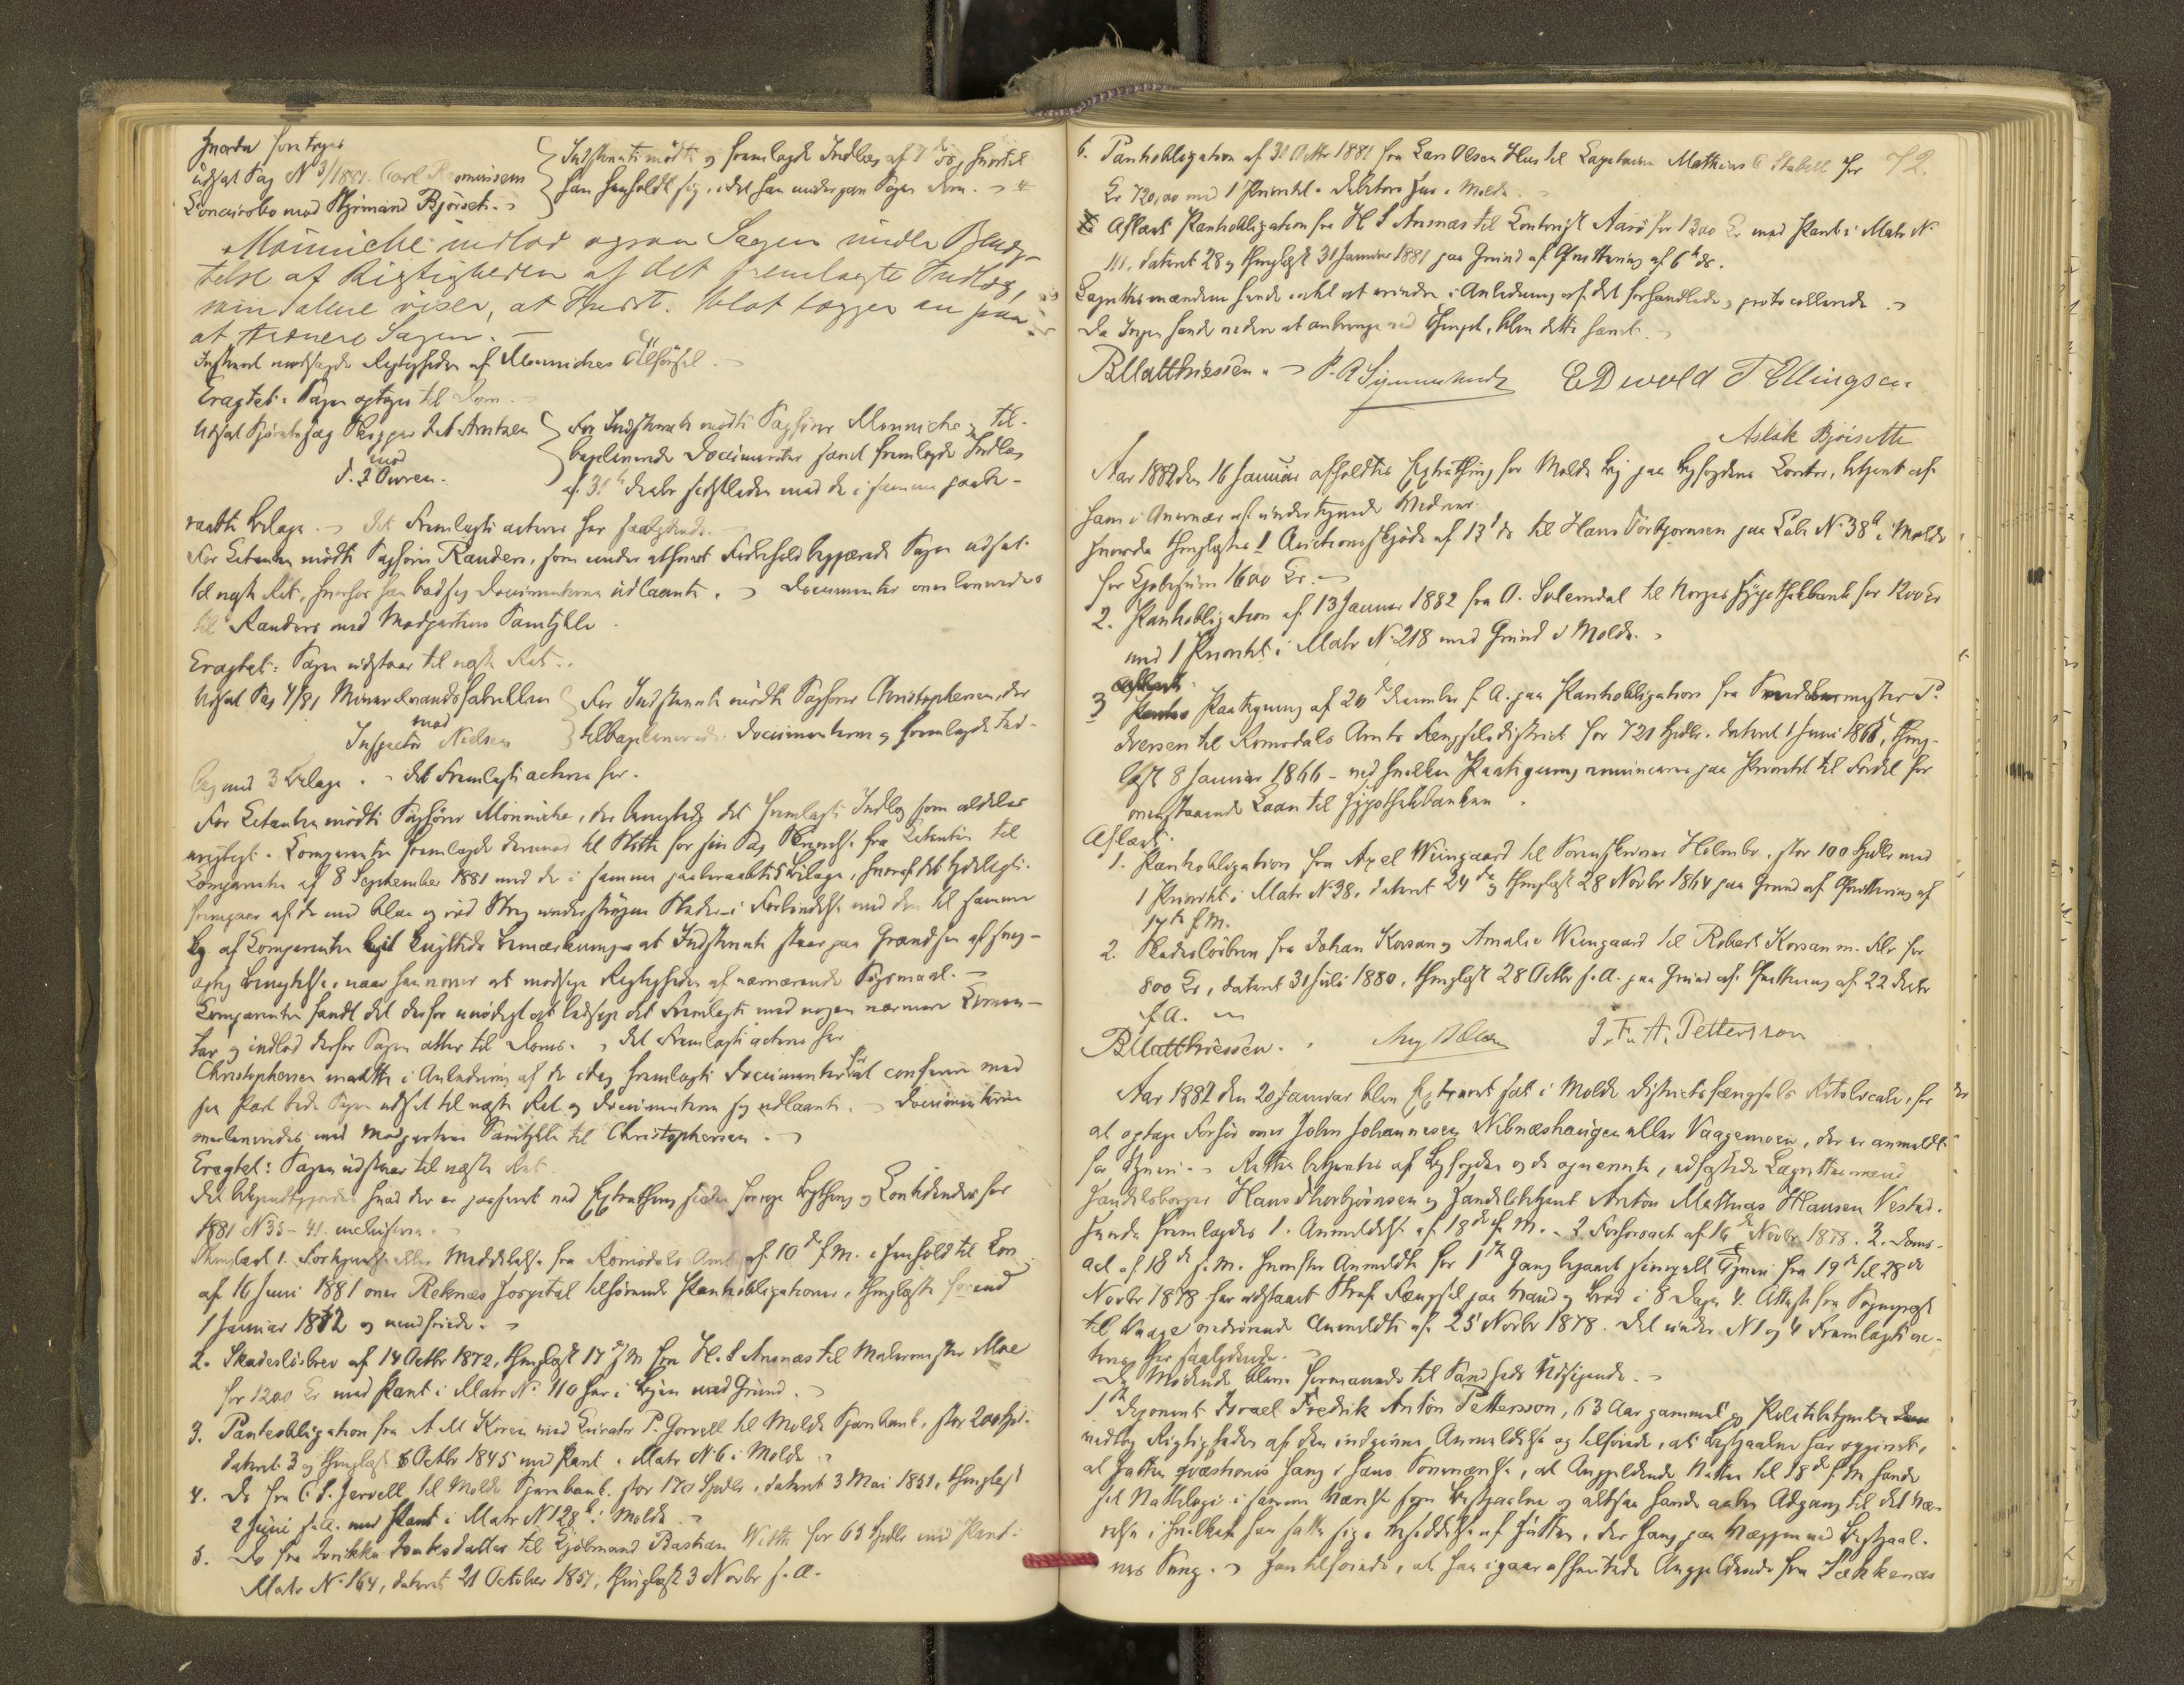 Hvorda foretoges
udsat Sag N 3/1881. Carl Rasmussen
Concursbo mod Styrmand Bjørset.
Indstevnte mødte og fremlagde Indlæg af 7 ds, hvortil
han henholdt sig, idet han undergav Sagen Dom.
Mönniche indlod ogsaa Sagen under Benæg-
telse af Rigtigheden af det fremlagte Indlæg,
som alene viser, at Indst. blot lægger an paa
at trænere Sagen.
Indstevnte modsagde Rigtigheden af Mønniches Tilførsel.
Eragtet: Sagen optages til Dom.
Udsat Sjøretssag Skipper Arntzen
mod
J. J Owren.
For Indstevnte mødte Sagfører Mönniche, til-
bageleverede Documenter samt fremlagde Indlæg
af 31 Decbr sidstleden med de i samme paabe-
raabte Bilage. Det Fremlagte acteres her saalydende.
For Citanten mødte Sagfører Randers, som under Forbehold begjærede Sagen udsat
til næste Ret, hvorhos han bad sig Documenterne udlaante. Documenter overleveredes
til Randers med Modpartens Samtykke.
Eragtet: Sagen udstaar til næste Ret.
Udsat Sag 4/81 Mineralvandsfabrikken
mod
Inspectør Nielsen
For Indstevnte mødte Sagfører Christophersen, der
tilbageleverede Documenterne og fremlagde Ind-
læg med 3 Bilage. Det Fremlagte acteres her.
For Citanten mødte Sagfører Mönniche, der benegtede det fremlagte Indlæg som aldeles
urigtigt. Comparenten fremlagde derimod til Støtte for sin Sag fra Citanten til
Comparenten af 8 September 1881 med de i samme paaberaabte Bilage, hvoraf det tydeligst
fremgaar af de med blaa og rød Streg understrøgne Steder i Forbindelse med den til samme
af Comparenten Bemærkninger at Indstevnte staar paa Grændsen af
Benegtelse, naar han vover at modsige Rigtigheden af nærværende Søgsmaal.
Comparenten fandt det derfor unødigt at ledsage det Fremlagte med nogen nærmere Commen-
tar og indlod derfor Sagen atter til Doms. Det Fremlagte acteres her
Christophersen maatte i Anledning af de idag fremlagte Documenter for at conferere med
sin Part bede Sagen udsat til næste Ret og Documenterne sig udlaante. Documenterne
overleveredes med Modpartens Samtykke til Christophersen.
Eragtet: Sagen udstaar til næste Ret.
Det bekjendtgjordes hvad der er passeret ved Extrathing siden forrige Bything og Lovtidende for
1881 N 35-41. inclusive.
Thinglæst 1. Meddelelse fra Romsdals Amt af 10 f.M. i Henhold til Lov
af 16 Juni 1881 over Reknæs Hospital tilhørende Panteobligationer, thinglæste forend
1 Januar 1872 og uindfriede.
2. Skadesløsbrev af 14 Octbr 1872, thinglæst 17 s M fra H. S Ansnæs til Malermester Moe
for 1200 Kr med Pant i Matr N. 110 her i Byen med Grund.
3. Panteobligation fra A M Koren med Curator P. Gørvell til Molde Sparebank, stor 200 Spd.
dateret 3 og thinglæst 6 Octbr 1845 med Pant i Matr N 6 i Molde.
4. Do fra C S. Jervell til Molde Sparebank stor 170 Spdlr, dateret 3 Mai 1851, thinglæst
2 Juni s.A. med Pant i Matr N 128 b i Molde.
5. Do fra til Kjøbmand Bastian With for 65 Spdlr med Pant i
Matr N. 164, dateret 21 October 1857, thinglæst 3 Novbr s. A.
6. Panteobligation af 31 Octbr 1881 fra Lars Olsen Hus til Mathias C Stabell for 72.
Kr 720,00 med 1 Prioritet i Debitors Hus i Molde.
Aflæst Panteobligation fra H S Ansnæs til Contorist Aarø for 1300 Kr med Pant i Matr N.
111, dateret 28 og thinglæst 31 Januar 1881 paa Grund af Qvittering af 6 ds.
Lagrettesmændene havde intet at erindre i Anledning af det forhandlede og protocollerede.
Da Ingen havde videre at anbringe ved Thinget, blev dette hævet.
B Matthiessen. P. A Edwald T Ellingsen
Aslak Bjørsetth
Aar 1882 den 16 Januar afholdtes Extrathing for Molde By paa Byfogdens Contor, betjent af
ham i Overvær af undertegnede Vidner.
Hvorda thinglæstes 1 Auctionsskjøde af 13 ds til Hans Torbjørnsen paa Lab N. 38 a i Molde
for Kjøbesum 1600 Kr.
2. Panteobligation af 13 Januar 1882 fra O. Solemdal til Norges Hypothekbank for 1200 Kr
med 1 Prioritet i Matr N. 218 med Grund i Molde.
3 Paategning af 20 December f. A. paa Panteobligation fra P.
Iversen til Romsdals Amts Fængselsdistrict for 721 Spdlr. dateret 1 Juni 1865, thing-
læst 8 Januar 1866 - ved hvilken Paategning renunceres paa Prioritet til Fordel for
ovenstaaende Laan til Hypothekbanken.
Aflæst:
1. Panteobligation fra Axel Wiingaard til Sorenskriver Holmboe, stor 100 Spdlr med
1 Prioritet i Matr N. 38, dateret 24 og thinglæst 28 Novbr 1864 paa Grund af Qvittering af
17 f.M.
2. Skadesløsbrev fra Johan Korsan og Amalie Wiingaard til Robert Korsan m. Fl. for
800 Kr, dateret 31 Juli 1880, thinglæst 28 Octbr s. A. paa Grund af Qvittering af 22 Decbr
f.A.
B Matthiessen. J. F. A. Pettersson
Aar 1882 den 20 Januar blev Extraret sat i Molde Districtsfængsels Retslocale, for
at optage Forhør over John Johannesen Nibnæshaugen eller Vaagemoen, der er anmeldt
for Tyveri. Retten betjentes af Byfogden og de opnævnte, edfæstede Lagrettesmænd
Handelsborger Hans Thorbjørnsen og Handelsbetjent Anton Mathias Hansen Vestad.
Hvorda fremlagdes 1. Anmeldelse af 18 d. M. 2 Forhørsact af 16 Novbr 1878. 3. Doms-
act af 18 s. M. hvorefter Anmeldte for 1ste Gang begaaet simpelt Tyveri fra 19 til 28
Novbr 1878 har udstaaet Straf Fængsel paa Vand og Brød i 8 Dage 4. Attest fra Sognepræst
til Vaage vedrørende Anmeldte af 25 Novbr 1878. Det under N 1 og 4 Fremlagte ac-
teres her saalydende.
De Mødende bleve formanede til Sandheds Udsigende.
1ste Deponent Israel Fredrik Anton Pettersson, 63 Aar gammel og Politibetjent
vedtog Rigtigheden af den indgivne Anmeldelse og tilføiede, at Bestjaalne har opgivet,
at Jakken qvæstionis hang i hans Soveværelse, at Angjeldende Natten til 18 d. M havde
sit Natteleie i samme Værelse som Bestjaalne og altsaa havde aaben Adgang til det Væ-
relse, i hvilket han satte sig i Besiddelse af Jakken, der hang paa Væggen ved Bestjaal-
nes Seng. Han tilføiede, at han igaar afhentede Angjeldende fra Sækkenæs